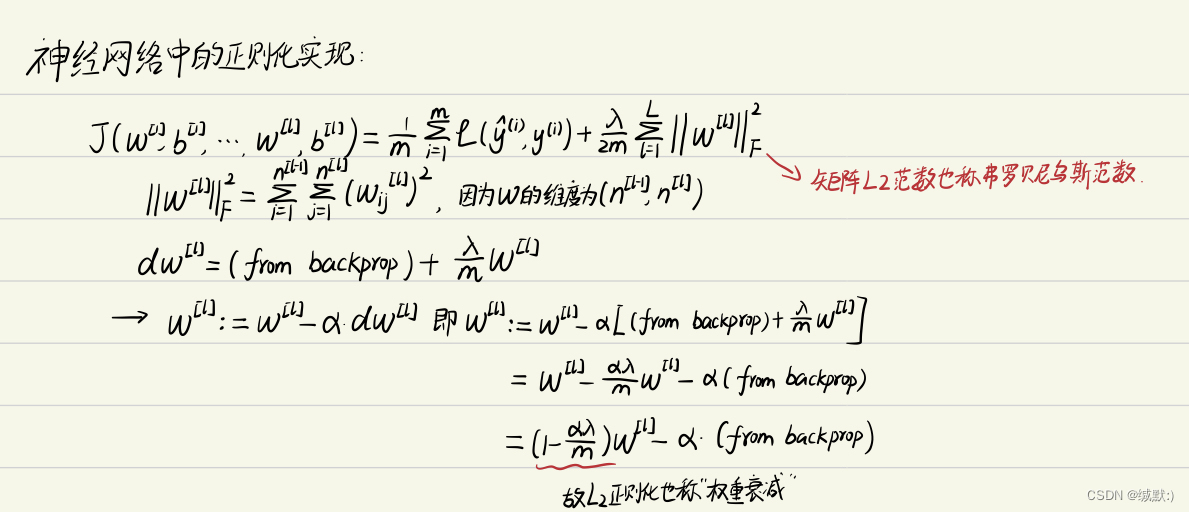 神经网络中的正则化实现:
J(w^{[1]}, b^{[1]}, ⋯, w^{[l]}, b^{[l]}) = \frac{1}{m} \sum_{i=1}^{m} L(ŷ^{(i)}, y^{(i)}) + \frac{λ}{2m} \sum_{l=1}^{L} ||w^{[l]}||_F^2
矩阵L2范数也称弗罗贝尼乌斯范数.
||w^{[l]}||_F^2 = \sum_{i=1}^{n^{[l-1]}} \sum_{j=1}^{n^{[l]}} (w_{ij}^{[l]})^2, 因为w的维度为(n^{[l-1]}, n^{[l]})
dw^{[l]} = (from backprop) + \frac{λ}{m} w^{[l]}
→ w^{[l]} := w^{[l]} - α·dw^{[l]} 即 w^{[l]} := w^{[l]} - α[(from backprop) + \frac{λ}{m} w^{[l]}]
= w^{[l]} - \frac{αλ}{m} w^{[l]} - α(from backprop)
= (1 - \frac{αλ}{m}) w^{[l]} - α·(from backprop)
故L2正则化也称"权重衰减"
CSDN @缄默:)